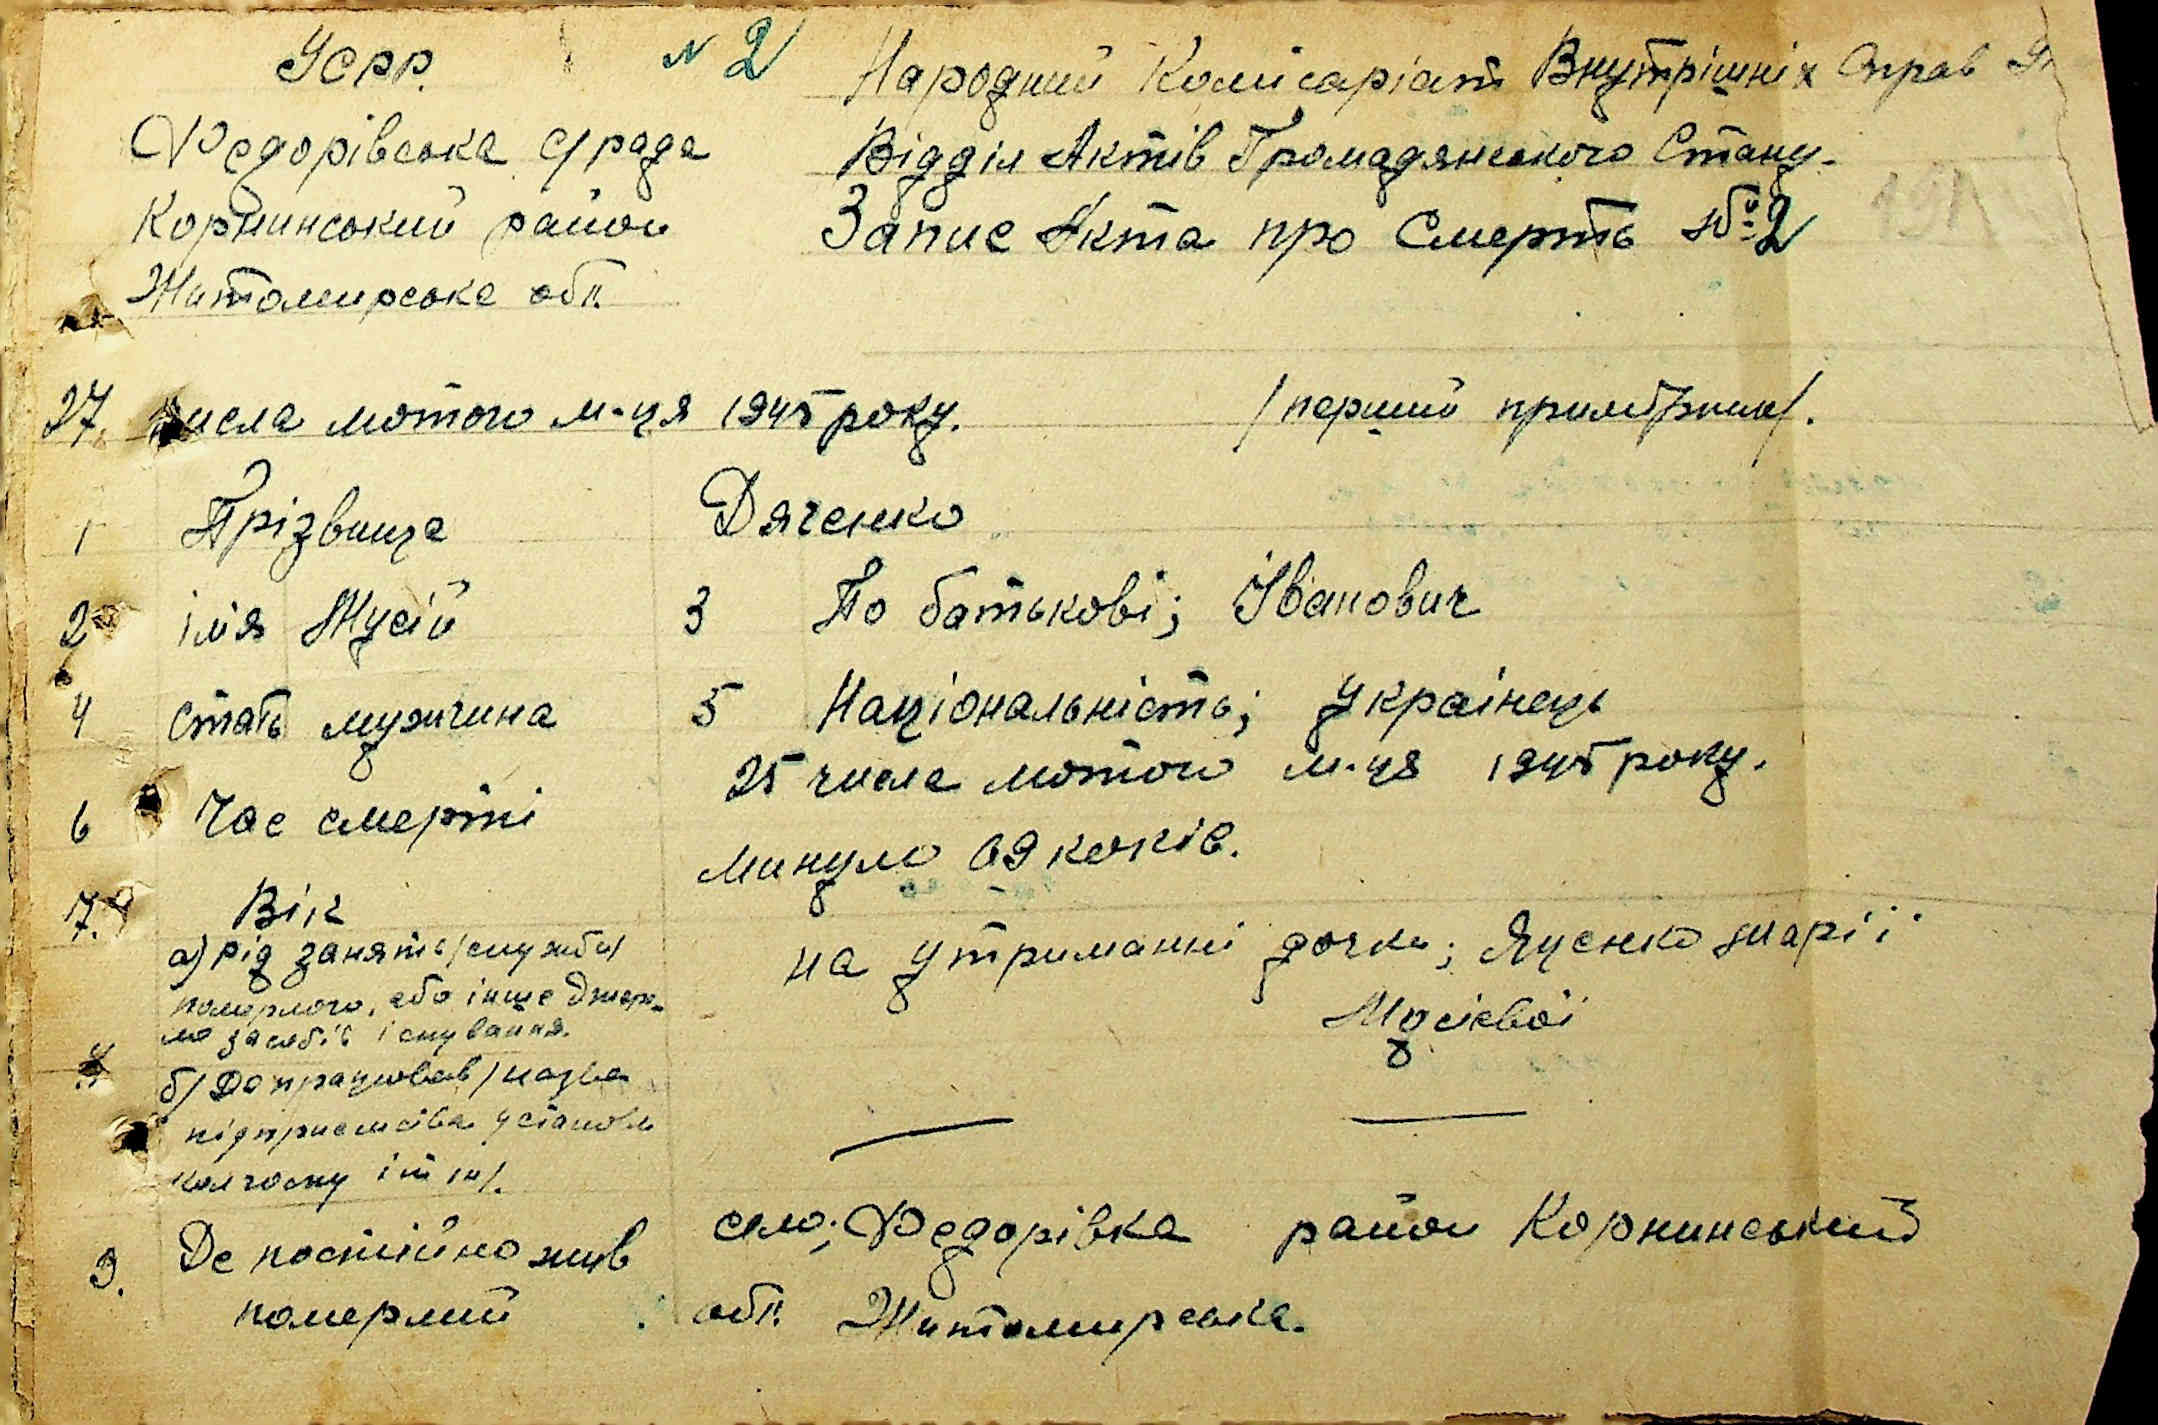 УСРР.
N 2
Народний Комісаріат Внутрішніх Справ
Федорівська с/рада
Відділ Актів Громадянського Стану.
Корнинський район
Запис Акта про Смерть № 2
Житомирська обл.
27. числа лютого м-ця 1945 року.
/перший примірник/.
1 Прізвище Дяченко
2 імя Мусій 3 По батькові; Іванович
4 Стать мужчина 5 Національність; Українець
6 Час смерті 25 числа лютого м-ця 1945 року.
7. Вік минуло 69 років.
а) Рід занять /служби/ на утриманні дочки; Яценко Марії
померлого, або інше джере-
ло засобів існування. Мусієвої
б/ Де працював /назва
підприємства установи
колгоспу і т ін/.
9. Де постійно жив село; Федорівка район Корнинський
померлий обл. Житомирська.